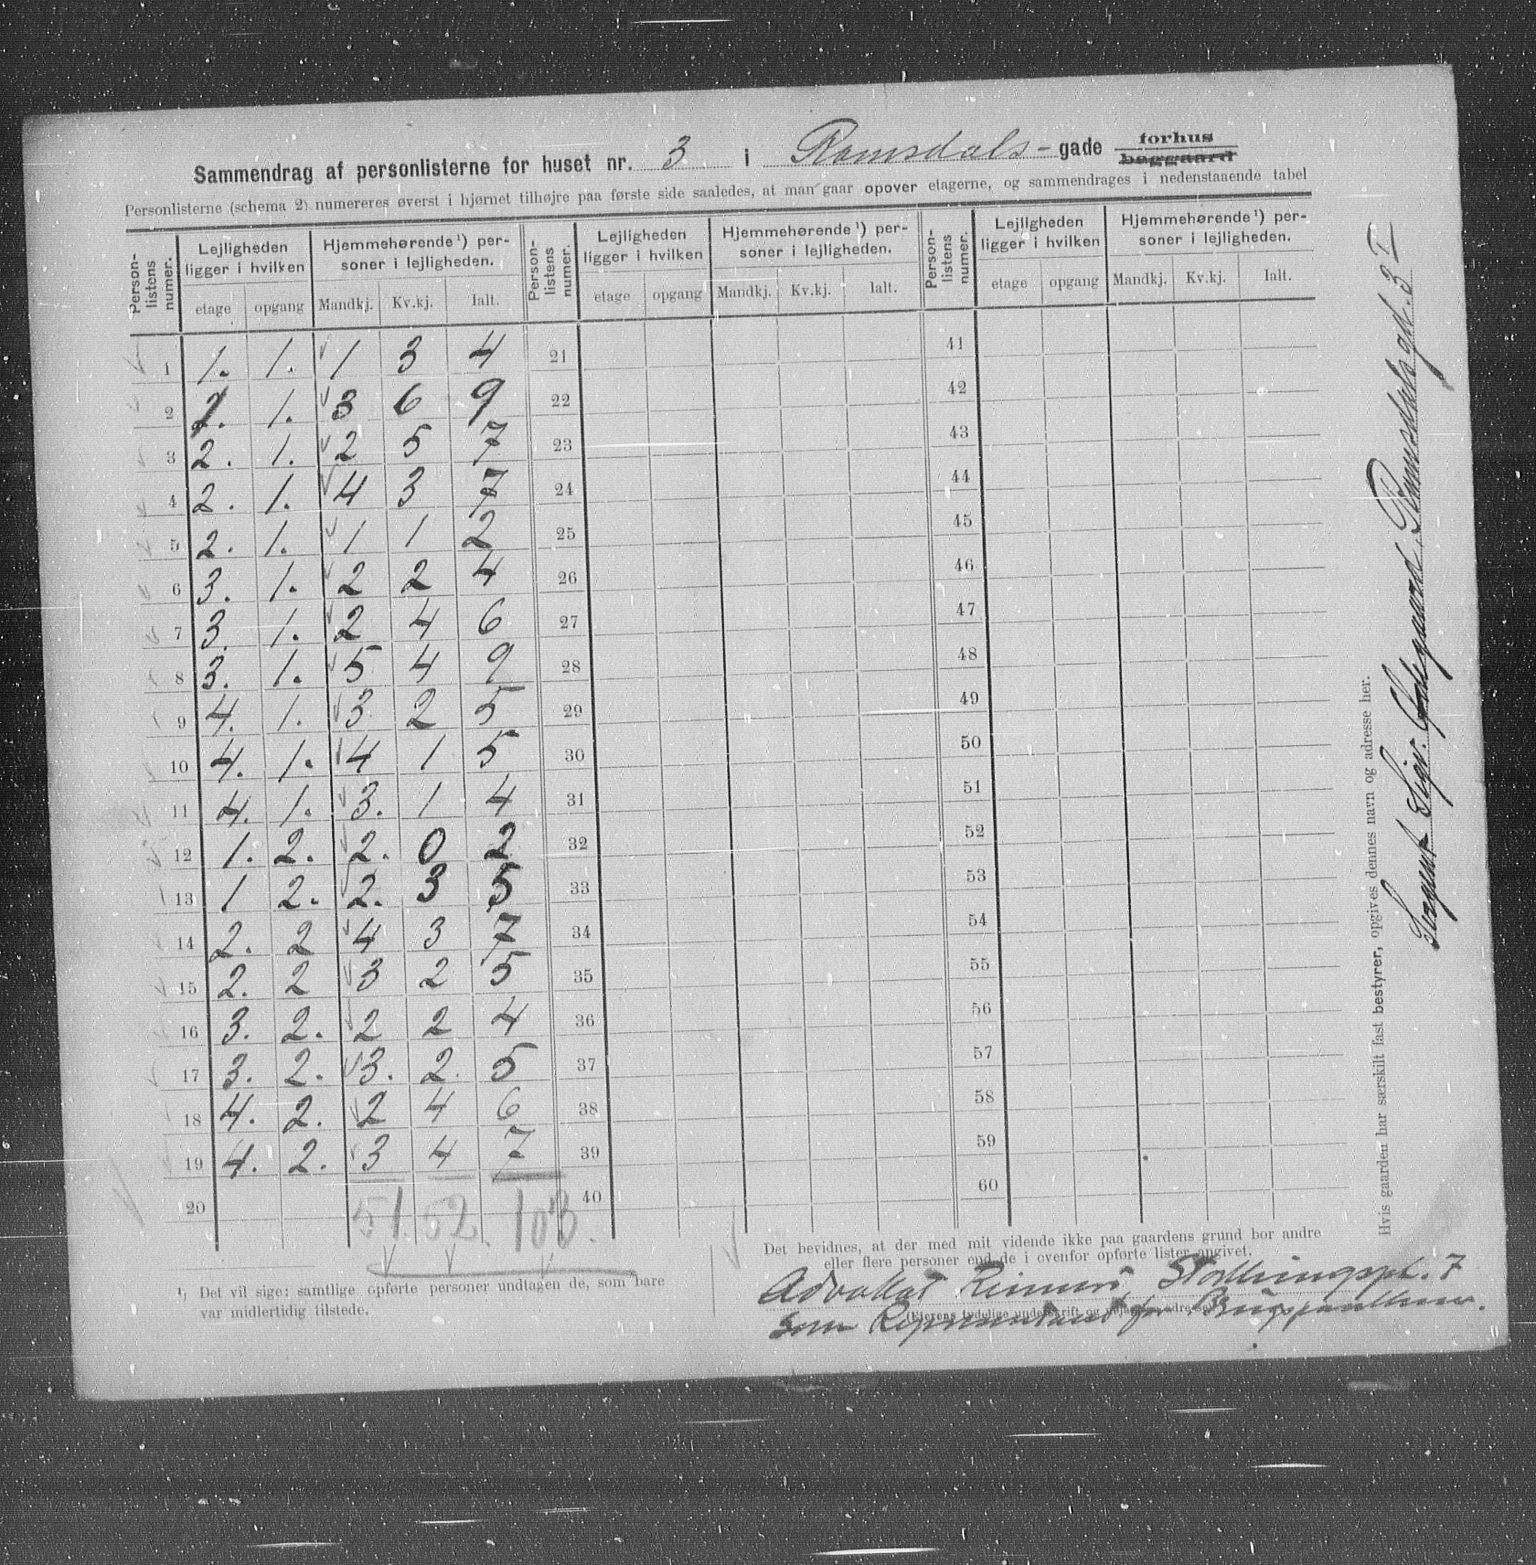 Sammendrag af personlisterne for huset nr. 3 i Romsdals-gade forhus
baggaard
Personlisterne (schema 2) numereres øverst i hjørnet tilhøjre paa første side saaledes, at man gaar opover etagerne, og sammendrages i nedenstaaende tabel
Person-listens numer. Lejligheden ligger i hvilken Hjemmehørende ¹) per-soner i lejligheden. Person-listens numer. Lejligheden ligger i hvilken Hjemmehørende ¹) per-soner i lejligheden. Person-listens numer. Lejligheden ligger i hvilken Hjemmehørende ¹) per-soner i lejligheden.
etage opgang Mandkj. Kv.kj. Ialt. etage opgang Mandkj. Kv.kj. Ialt. etage opgang Mandkj. Kv.kj. Ialt.
1 1. 1. 1 3 4 21 41
2 2. 1. 3 6 9 22 42
3 2. 1. 2 5 7 23 43
4 2. 1. 4 3 7 24 44
5 2. 1. 1 1 2 25 45
6 3. 1. 2 2 4 26 46
7 3. 1. 2 4 6 27 47
8 3. 1. 5 4 9 28 48
9 4. 1. 3 2 5 29 49
10 4. 1. 4 1 5 30 50
11 4. 1. 3. 1 4 31 51
12 1. 2. 2. 0 2 32 52
13 1 2. 2. 3 5 33 53
14 2. 2 4 3 7 34 54
15 2. 2 3 2 5 35 55
16 3. 2. 2 2 4 36 56
17 3. 2. 3. 2. 5 37 57
18 4. 2. 2 4 6 38 58
19 4. 2. 3 4 7 39 59
20 51. 52. 103. 40 60
¹) Det vil sige: samtlige opførte personer undtagen de, som bare
var midlertidig tilstede.
Det bevidnes, at der med mit vidende ikke paa gaardens grund bor andre
eller flere personer end de i ovenfor opførte lister angivet.
Advokat
som Repræsentant for
Hvis gaarden har særskilt fast bestyrer, opgives dennes navn og adresse her.
Sergent Sigv. Ødegaard, Romsdalsgd. 3 I